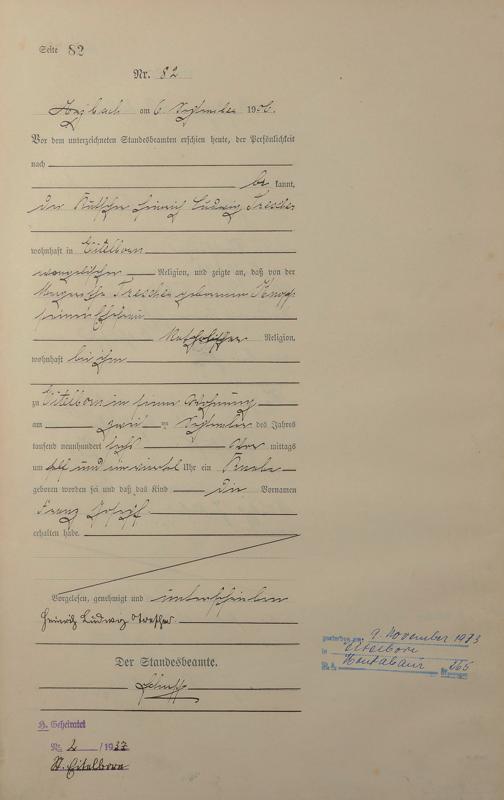 Seite 82
Nr. 82
Arzbach am 6 September 1906.
Vor dem unterzeichneten Standesbeamten erschien heute, der Persönlichkeit
nach
be kannt,
der Kutscher Heinrich Ludwig Trescher
wohnhaft in Eitelborn
evangelischer Religion, und zeigte an, daß von der
Margaretha Trescher geborenen
seiner Ehefrau
Katholischer Religion,
wohnhaft bei ihm
zu Eitelborn in seiner Wohnung
am zwei ten September des Jahres
tausend neunhundert sechs Vor mittags
um elf und ein viertel Uhr ein Knabe
geboren worden sei und daß das Kind die Vornamen
Franz Josef
erhalten habe.
Vorgelesen, genehmigt und unterschrieben
Heinrich Ludwig Trescher
Der Standesbeamte.
H. Geheiratet
Nr. 2 /1937
St. Eitelborn
gestorben am 9. November 1973
in Eitelborn
Montabaur